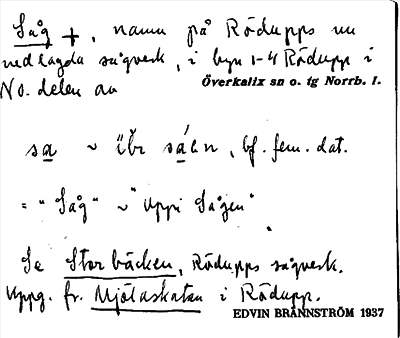 Såg +, namn på Rödupps nu
nedlagda sågverk, i byn 1-4 Rödupp i
No. delen av
Överkalix sn o. tg Norrb. l.
sa ~ übr sáln, bf. fem. dat.
= "Såg" ~ "uppi Sågen"
Se Storbäcken, Rödupps sågverk.
Uppg. fr. Mjölaskatan i Rödupp.
EDVIN BRÄNNSTRÖM 1937